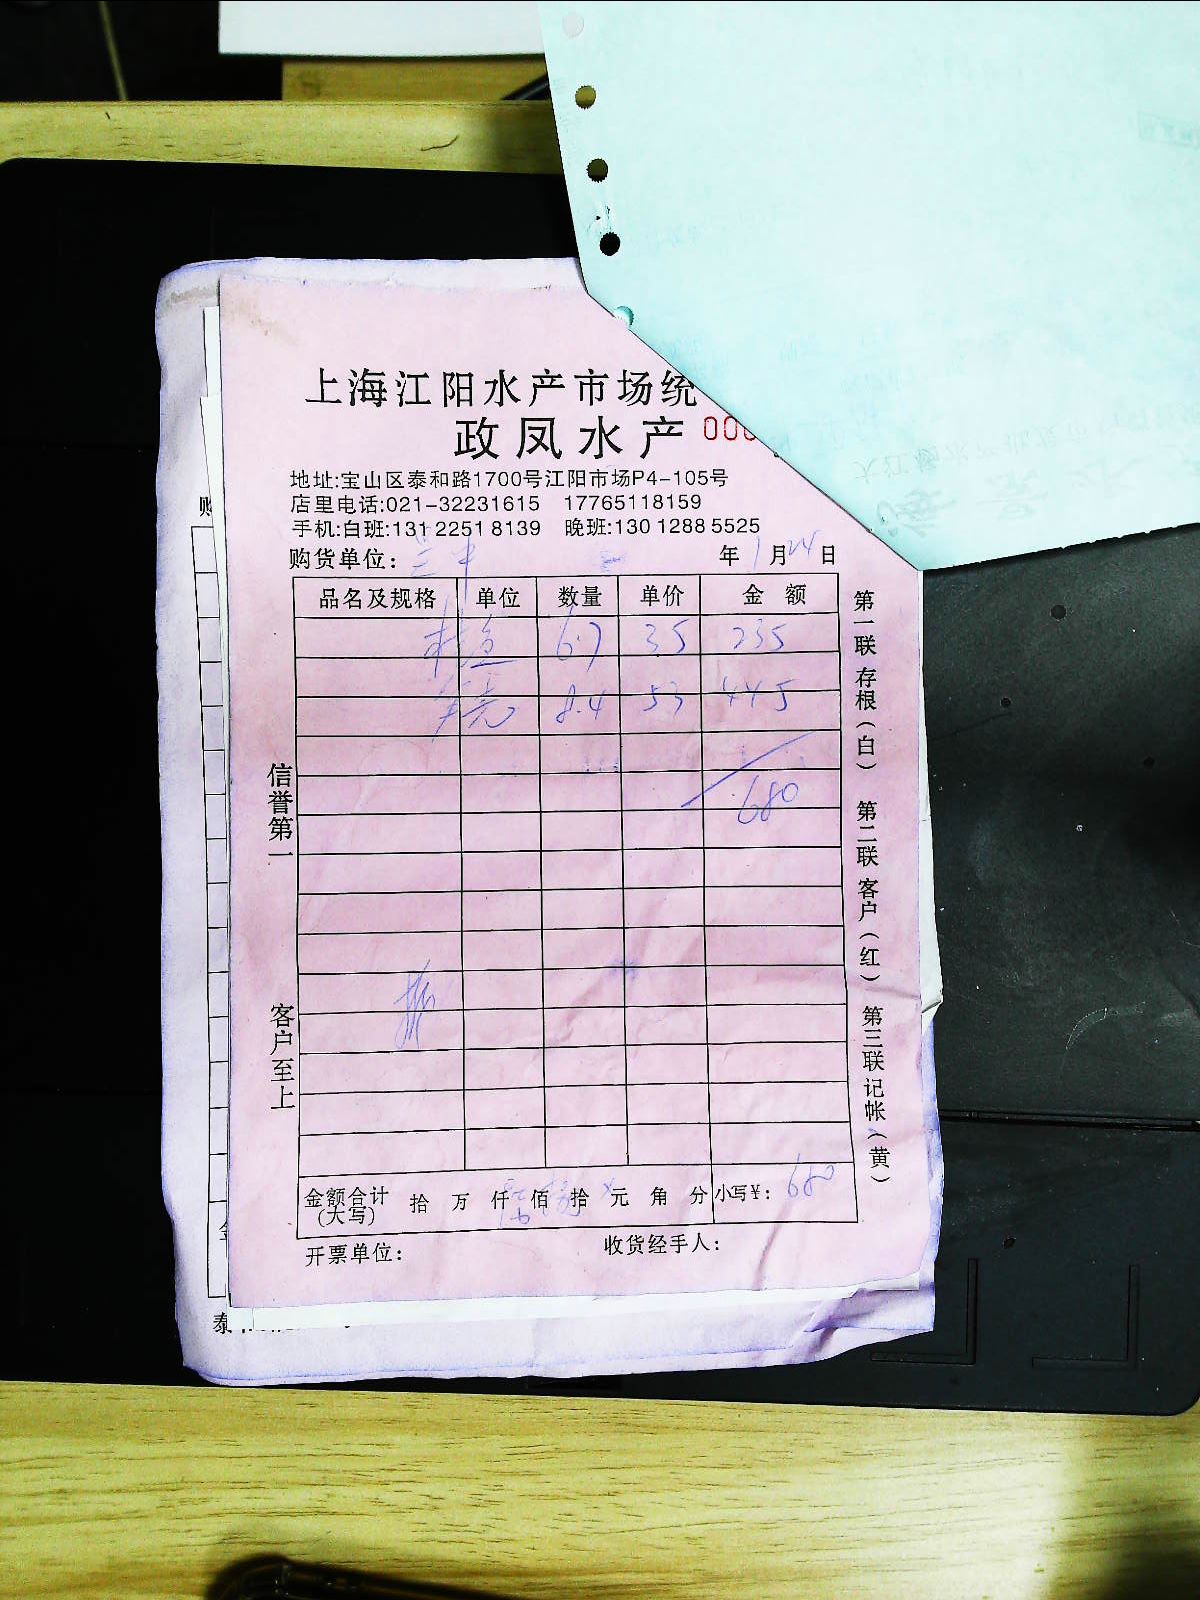 上海江阳水产市场统
政凤水产 000
地址:宝山区泰和路1700号江阳市场P4-105号
店里电话:021-32231615 17765118159
手机:白班:131 2251 8139 晚班:130 1288 5525
购货单位: 年 1 月 24 日
品名及规格 单位 数量 单价 金额
6.7 35 235
8.4 53 445
680
信誉第一
客户至上
第一联 存根(白) 第二联 客户(红) 第三联 记帐(黄)
金额合计(大写) 拾 万 仟 佰 拾 元 角 分 小写¥: 680
开票单位: 收货经手人:
购
泰